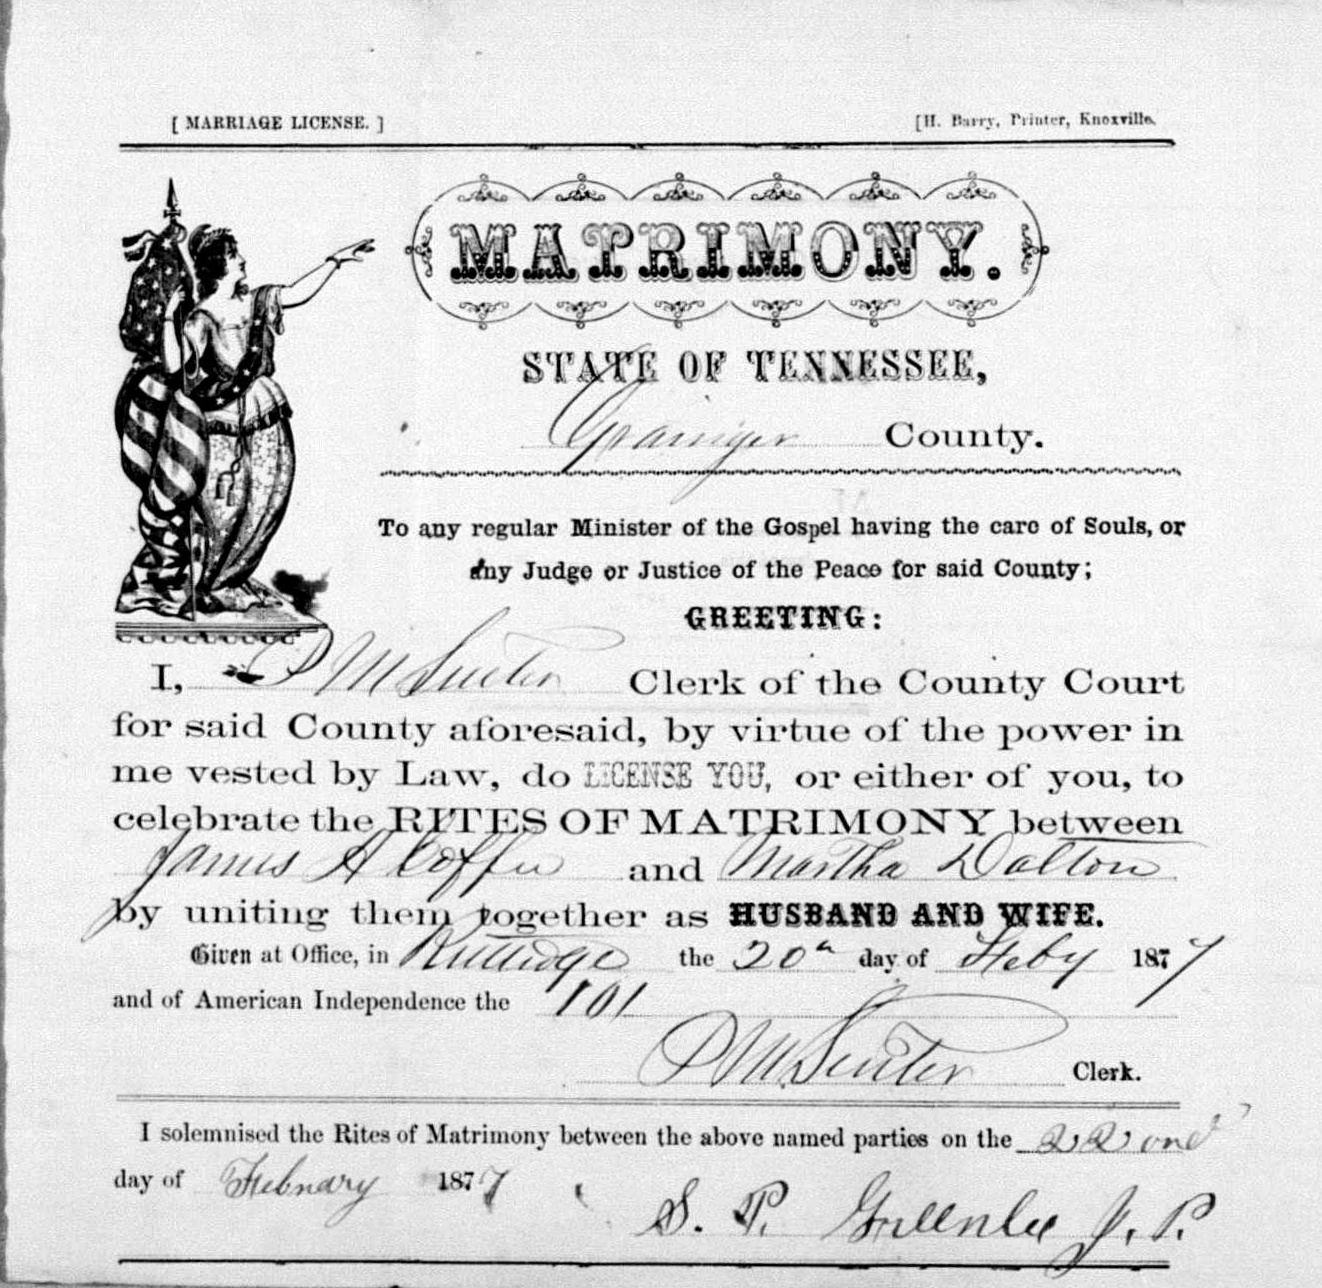 [ MARRIAGE LICENSE. ]
[H. Barry, Printer, Knoxville.
MATRIMONY.
STATE OF TENNESSEE,
Grainger County.
To any regular Minister of the Gospel having the care of Souls, or
any Judge or Justice of the Peace for said County;
GREETING:
I, P M Senter Clerk of the County Court
for said County aforesaid, by virtue of the power in
me vested by Law, do LICENSE YOU, or either of you, to
celebrate the RITES OF MATRIMONY between
James A Coffee and Martha Dalton
by uniting them together as HUSBAND AND WIFE.
Given at Office, in Rutledge the 20th day of Feby 1877
and of American Independence the 101
P M Senter Clerk.
I solemnised the Rites of Matrimony between the above named parties on the 22 ond
day of February 1877
S. P. Greenlee J. P.